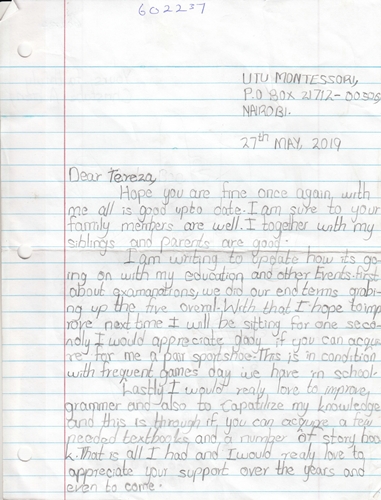 602237
UTU MONTESSORI,
P.O BOX 21712-00505
NAIROBI.
27th MAY, 2019
Dear Tereza,
Hope you are fine once again, with
me all is good upto date. I am sure to your
family members are well. I together with my
siblings and parents are good.
I am writing to update how its go
ing on with my education and other Events-first
about examanations, we did our end terms grabi-
ng up the five overal. With that I hope to imp
rove next time I will be sitting for one seco
ndly I would appreciate glady if you can acqu
re for me a pair sportshoe. This is in condition
with frequent games' day we have in school.
Lastly I would realy love to improve
grammer and also to Capatilize my knowledge
and this is through if, you can acqure a few
needed textbooks and a number of story boo
k. That is all I had and I would realy love to
appreciate your support over the years and
even to come.